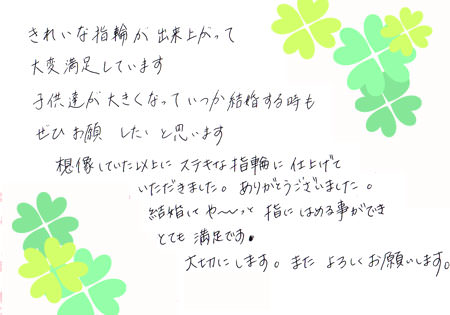 きれいな指輪が出来上がって
大変満足しています
子供達が大きくなっていつか結婚する時も
ぜひお願いしたいと思います
想像していた以上にステキな指輪に仕上げて
いただきました。ありがとうございました。
結婚してや〜っと指にはめる事ができ
とても満足です。
大切にします。またよろしくお願いします。